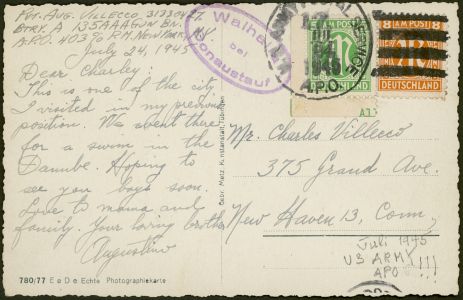 Pvt. Aug. Villecco
Btry. A 135 AAA Gun Bn.
A.P.O. 403 % P.M. New York, N.Y.
July 24, 1945
Dear Charley
This is one of the city
I visited in my previous
position. We went there
for a swim in the
Danube. Hoping to
see you boys soon.
Love to mama and
family. Your loving brother
Augustino
Walhalla
bei
Donaustauf
JUL
24
1945
A.P.O.
AM POST
DEUTSCHLAND
8 AM POST 8
DEUTSCHLAND
Mr. Charles Villecco
375 Grand Ave.
New Haven 13, Conn.
Juli 1945
US ARMY
APO !!!
Gebr. Metz, Kunstanstalt, Tübingen
780/77 E e D e Echte Photographiekarte